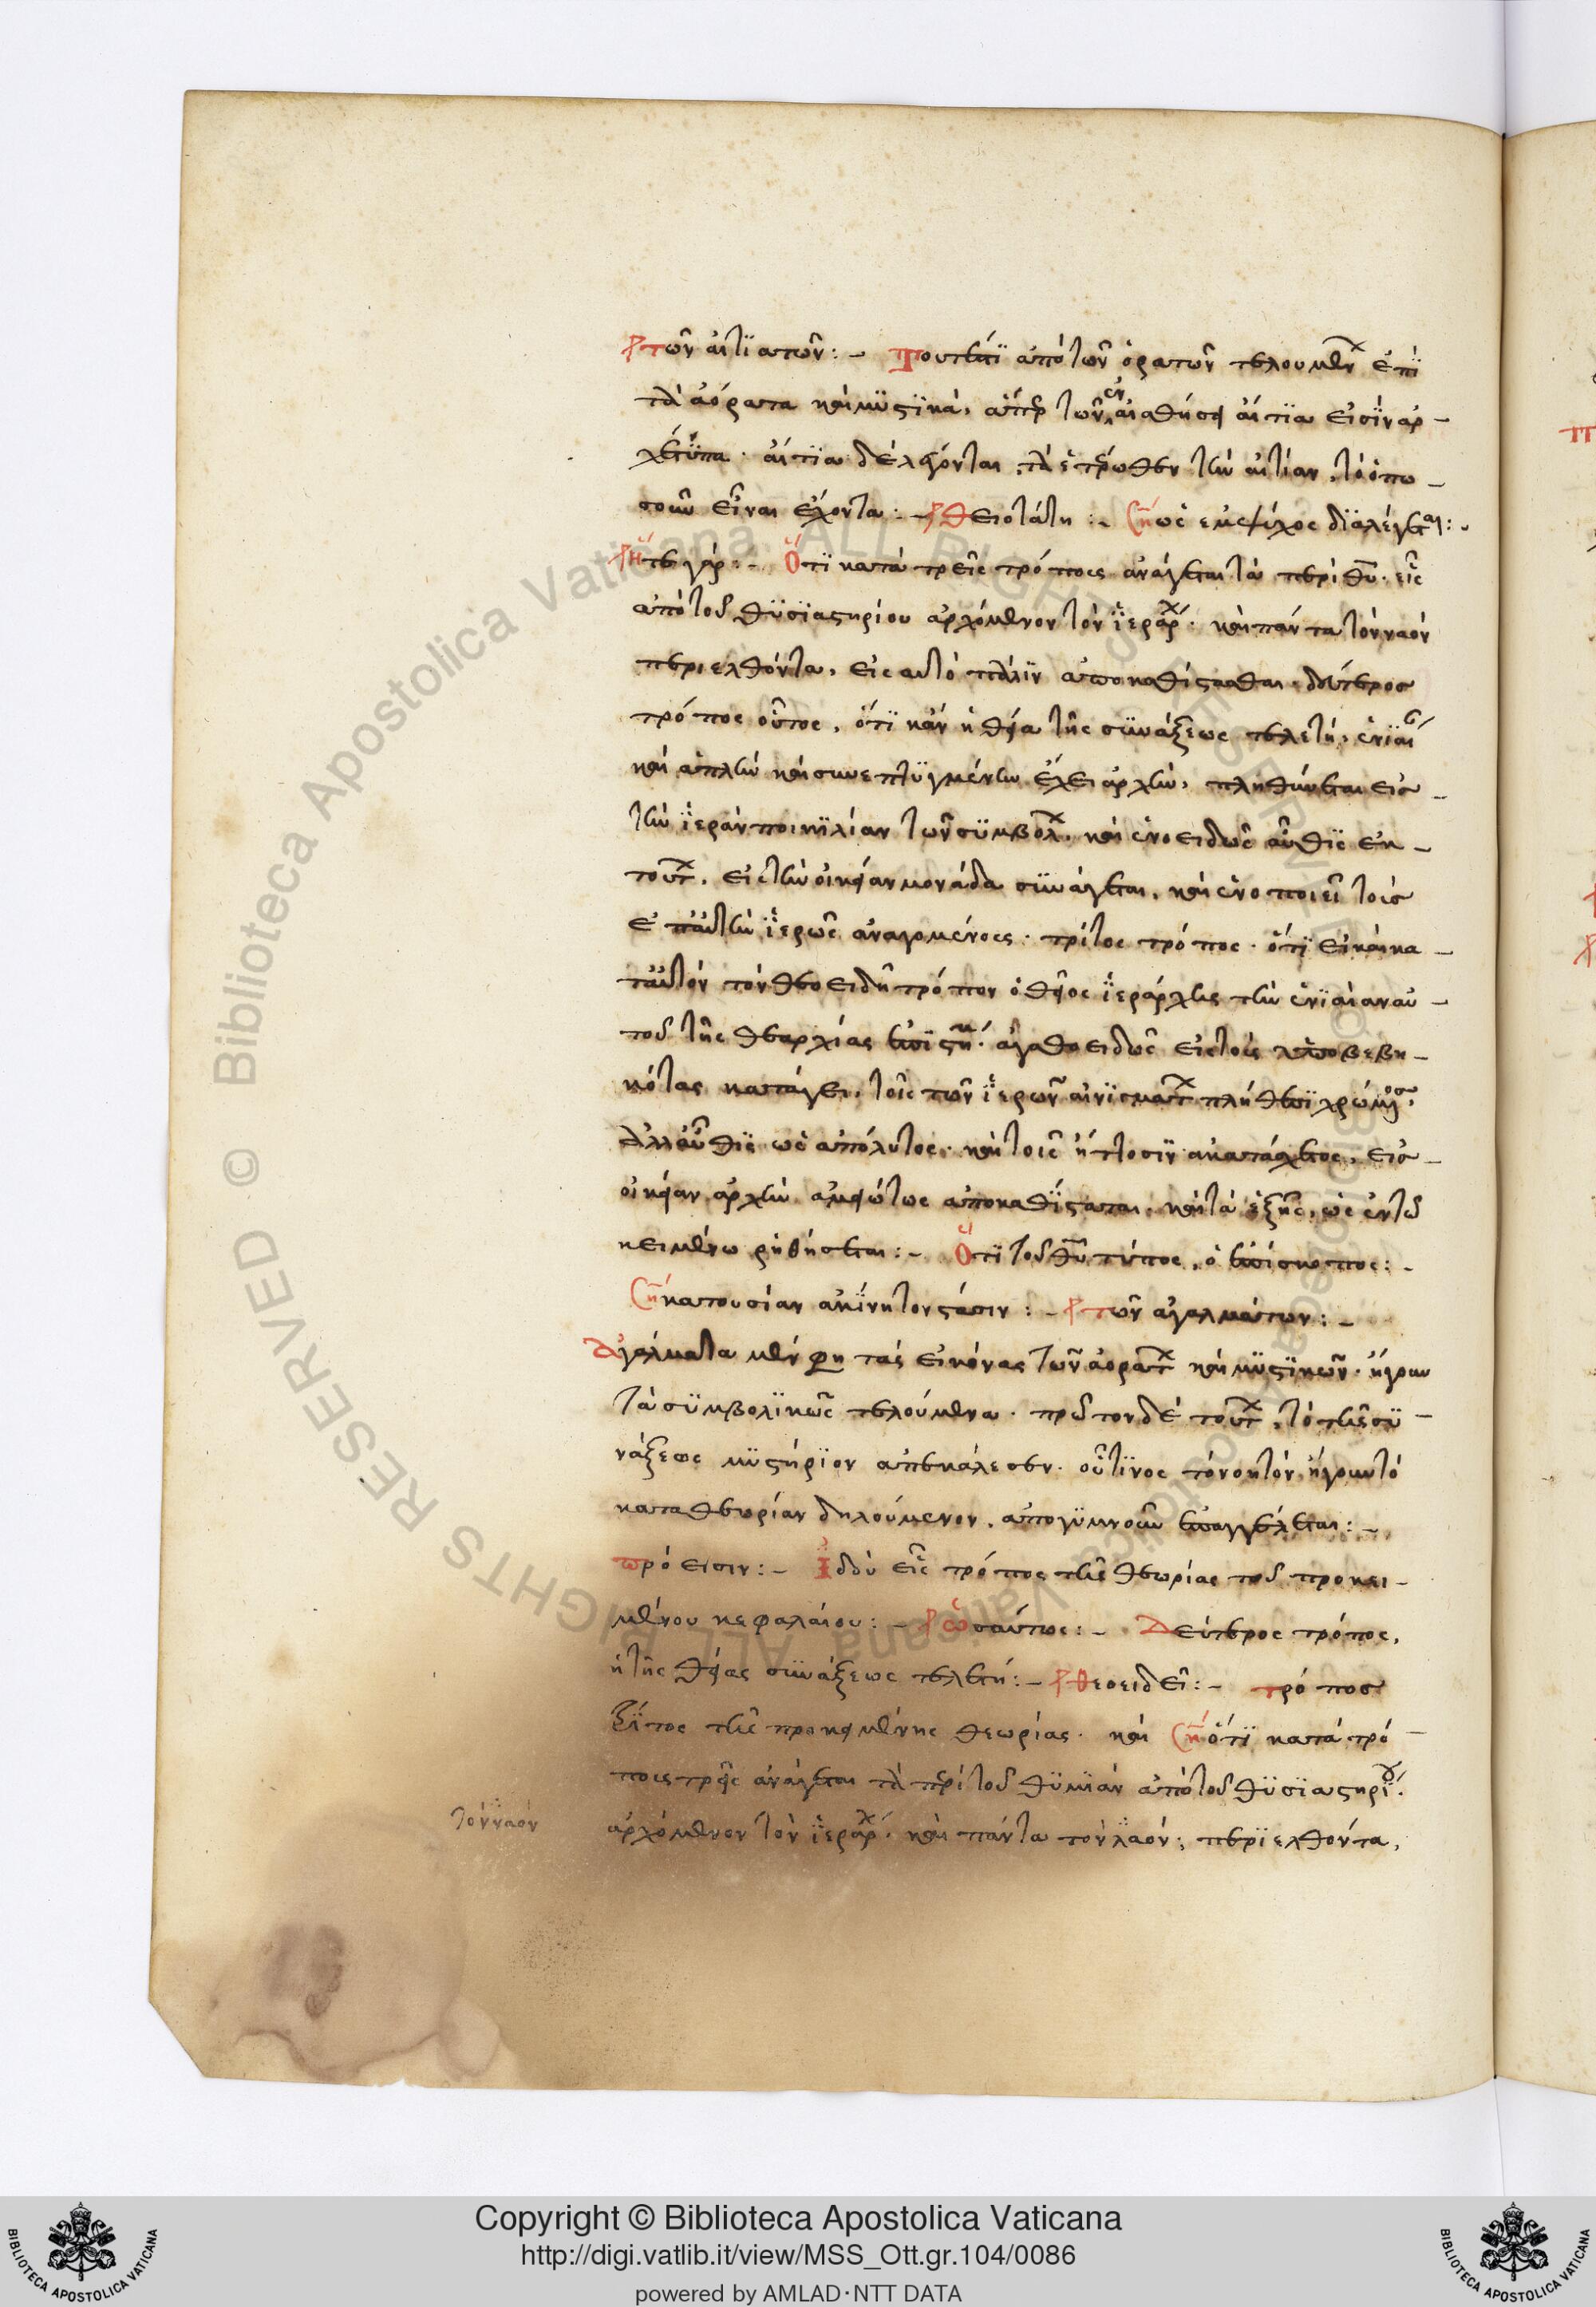 τῶν αἰτιατῶν :- Τουτέστι ἀπὸ τῶν ὁρατῶν τελουμένων ἐπὶ
τὰ ἀόρατα καὶ μυστικὰ, ἅπερ τῶν ἐν αἰσθήσει αἴτια εἰσὶν ἀρ-
χέτυπα. αἴτια δὲ λέγονται, τὰ ἑτέρωθεν τὴν αἰτίαν, τὸ ὁπω-
σοῦν εἶναι ἔχοντα :- θειοτάτη :- ὡς
γάρ :- Ὅτι κατὰ τρεῖς τρόπους ἀνάγεται τὰ περὶ θυ. εἷς
ἀπὸ τοῦ θυσιαστηρίου ἀρχόμενον τὸν ἱεράρχ. καὶ πάντα τὸν ναὸν
περιελθόντα, εἰς αὐτὸ πάλιν ἀποκαθίστασθαι. δεύτερος
τρόπος οὗτος, ὅτι κἂν ἡ θεία τῆς συνάξεως τελετὴ, ἑνιαί
καὶ ἁπλὴν καὶ συνεπτυγμένην ἔχει ἀρχὴν, πληθύνεται εἰς
τὴν ἱερὰν ποικιλίαν τῶν συμβόλ. καὶ ἑνοειδῶς αὖθις ἐκ
τούτ. εἰς τὴν οἰκείαν μονάδα συνάγεται, καὶ ἑνοποιεῖ τοὺς
ἐπ' αὐτὴν ἱερῶς ἀναγομένους. τρίτος τρόπος. ὅτι εἰ καὶ κα-
τ' αὐτὸν τὸν θεοειδῆ τρόπον ὁ θεῖος ἱεράρχης τὴν ἑνιαίαν αὐ-
τοῦ τῆς θεαρχίας ἐπιστή. ἀγαθοειδῶς εἰς τοὺς ὑποβεβη-
κότας κατάγει, τοῖς τῶν ἱερῶν αἰνιγμάτ πλήθεσι χρώμενος.
ἀλλ' αὖθις ὡς ἀπόλυτος. καὶ τοῖς ἥττοσιν ἀκατάσχετος, εἰς
οἰκείαν ἀρχὴν ἀμειώτως ἀποκαθίσταται. καὶ τὰ ἑξῆς, ὡς ἐν τῶ
κειμένω ῥηθήσεται :- Ὅτι τοῦ θυ τύπος, ὁ ἐπίσκοπος :-
κατουσίαν ἀκίνητον στάσιν :- τῶν ἀγαλμάτων :-
Ἀγάλματα μέν φη τὰς εἰκόνας τῶν ἀοράτ καὶ μυστικῶν. ἤγουν
τὰ συμβολικῶς τελούμενα. πρῶτον δὲ τούτ, τὸ τῆς συ-
νάξεως μυστήριον ἀπεκάλεσεν. οὗτινος τὸ νοητὸν ἤγουν τὸ
κατα θεωρίαν δηλούμενον, ἀπογυμνοῦν ἐπαγγέλεται :-
πρόεισιν :- Ἰδοὺ εἷς τρόπος τῆς θεωρίας τοῦ προκει-
μένου κεφαλαίου :- ὡσαύτως :- Δεύτερος τρόπος,
ἡ τῆς θείας συνάξεως τελετή :- θεοειδεῖ :- τρόπος
τρίτος τῆς προκειμένης θεωρίας. καὶ ὅτι κατὰ τρό-
πους τρεῖς ἀνάγεται τὰ περὶ τοῦ θυμιᾶν ἀπὸ τοῦ θυσιαστηρίου.
τὸν ναὸν ἀρχόμενον τὸν ἱεράρχ. καὶ πάντα τὸν λαὸν, περιελθόντα,
© Biblioteca Apostolica Vaticana ALL RIGHTS RESERVED
Copyright © Biblioteca Apostolica Vaticana
http://digi.vatlib.it/view/MSS_Ott.gr.104/0086
powered by AMLAD·NTT DATA
BIBLIOTECA APOSTOLICA VATICANA
BIBLIOTECA APOSTOLICA VATICANA